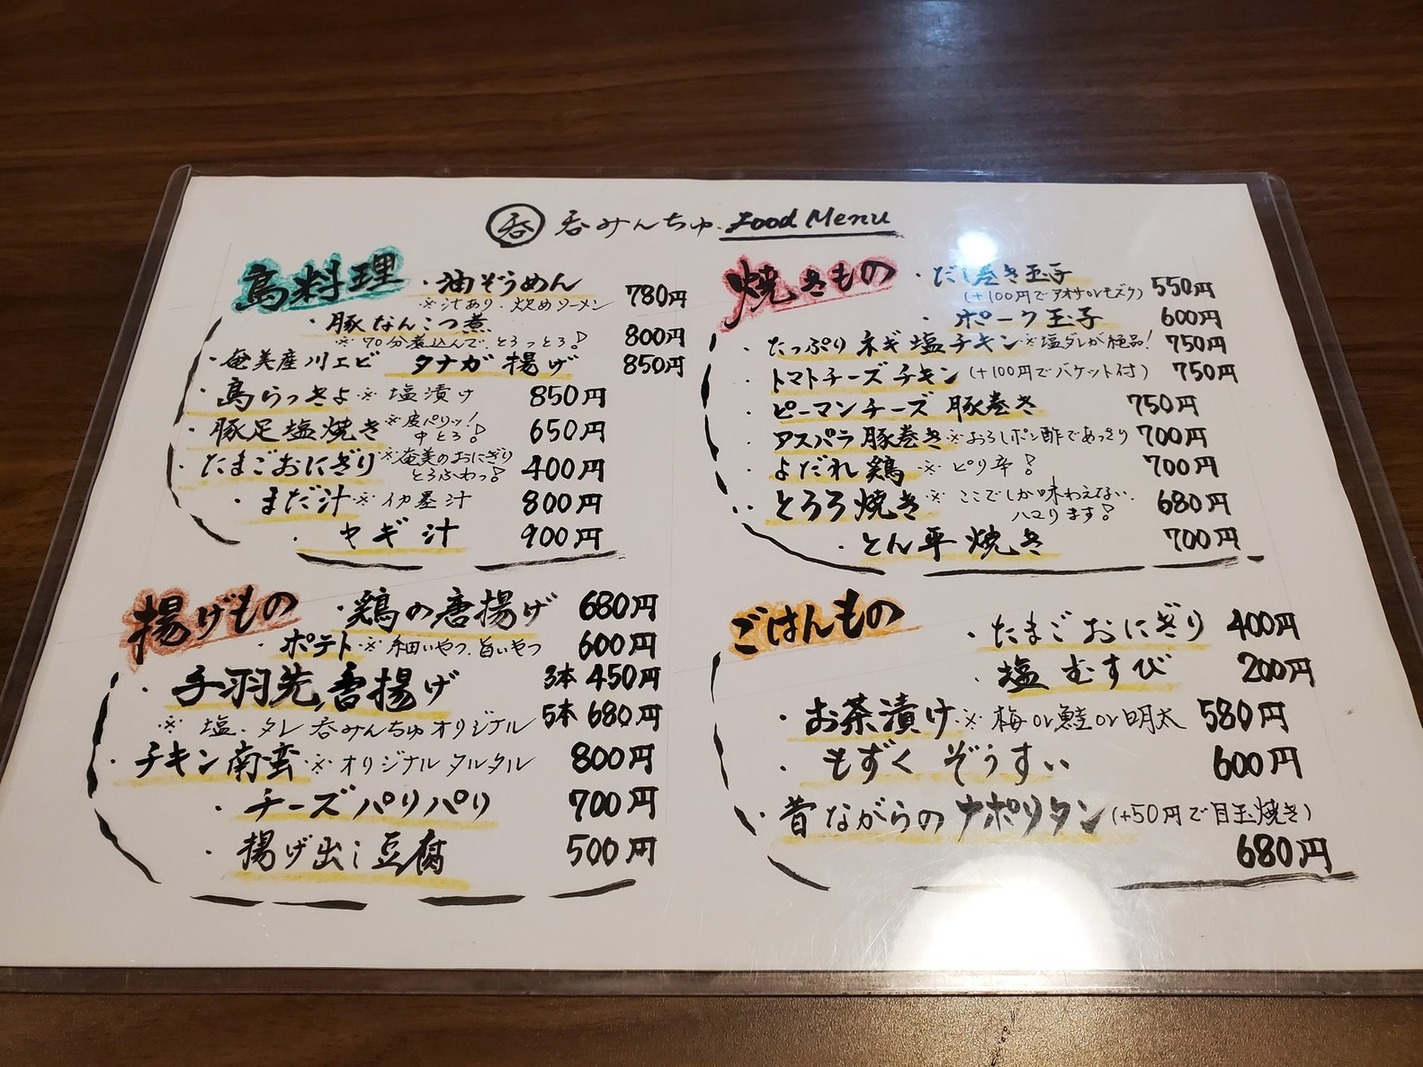 呑 呑みんちゅ Food Menu
島料理
・油ぞうめん 780円
※汁あり・炒めソーメン
・豚なんこつ煮 800円
※70分煮込んで、とろっとろ!
・奄美産川エビ タナガ揚げ 850円
・島らっきょ ※塩漬け 850円
・豚足塩焼き ※皮パリッ!中とろ! 650円
・たまごおにぎり ※奄美のおにぎりとろふわっ! 400円
・まだ汁 ※イカ墨汁 800円
・ヤギ汁 900円
揚げもの
・鶏の唐揚げ 680円
・ポテト ※細いやつ、旨いやつ 600円
・手羽先唐揚げ 3本 450円
※塩・タレ 呑みんちゅオリジナル 5本 680円
・チキン南蛮 ※オリジナルタルタル 800円
・チーズパリパリ 700円
・揚げ出し豆腐 500円
焼きもの
・だし巻き玉子 550円
(+100円でアオサorモズク)
・ポーク玉子 600円
・たっぷりネギ塩チキン ※塩タレが絶品! 750円
・トマトチーズチキン (+100円でバケット付) 750円
・ピーマンチーズ豚巻き 750円
・アスパラ豚巻き ※おろしポン酢であっさり 700円
・よだれ鶏 ※ピリ辛! 700円
・とろろ焼き ※ここでしか味わえない、ハマります! 680円
・とん平焼き 700円
ごはんもの
・たまごおにぎり 400円
・塩むすび 200円
・お茶漬け ※梅or鮭or明太 580円
・もずくぞうすい 600円
・昔ながらのナポリタン (+50円で目玉焼き)
680円